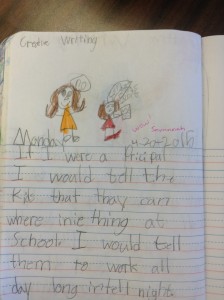 Creative Writing
Monday
4-20-2016
If I were a Pricipal
I would tell the
Kids that they can
where inie thing at
School. I would tell
them to work all
day long intell night